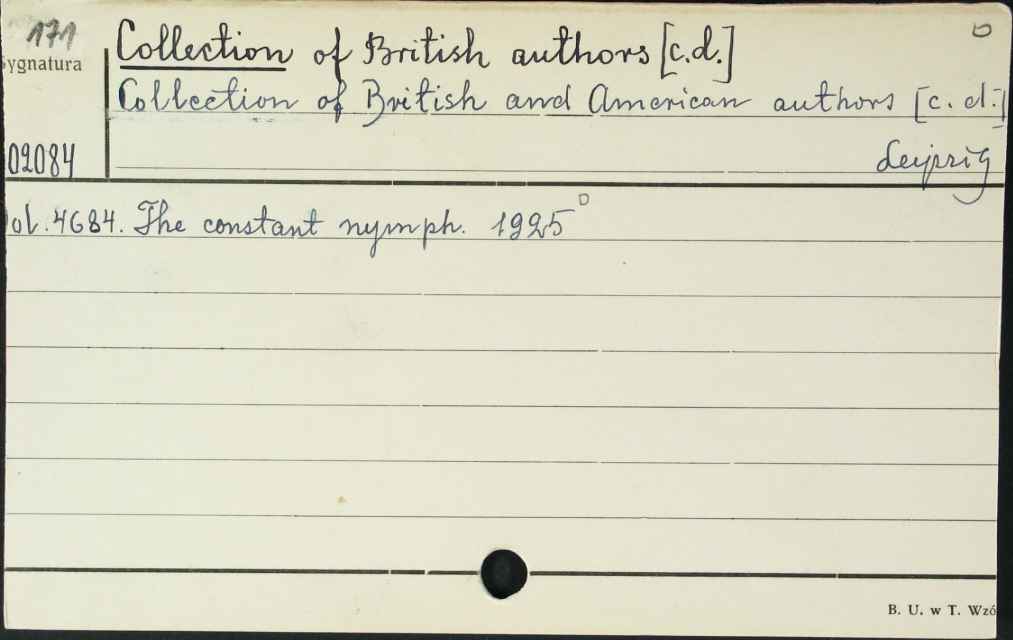 171
Sygnatura
Collection of British authors [c.d.]
Collection of British and American authors [c.d.]
02084
Leipzig
ol. 4684. The constant nymph. 1925
B. U. w T. Wzó